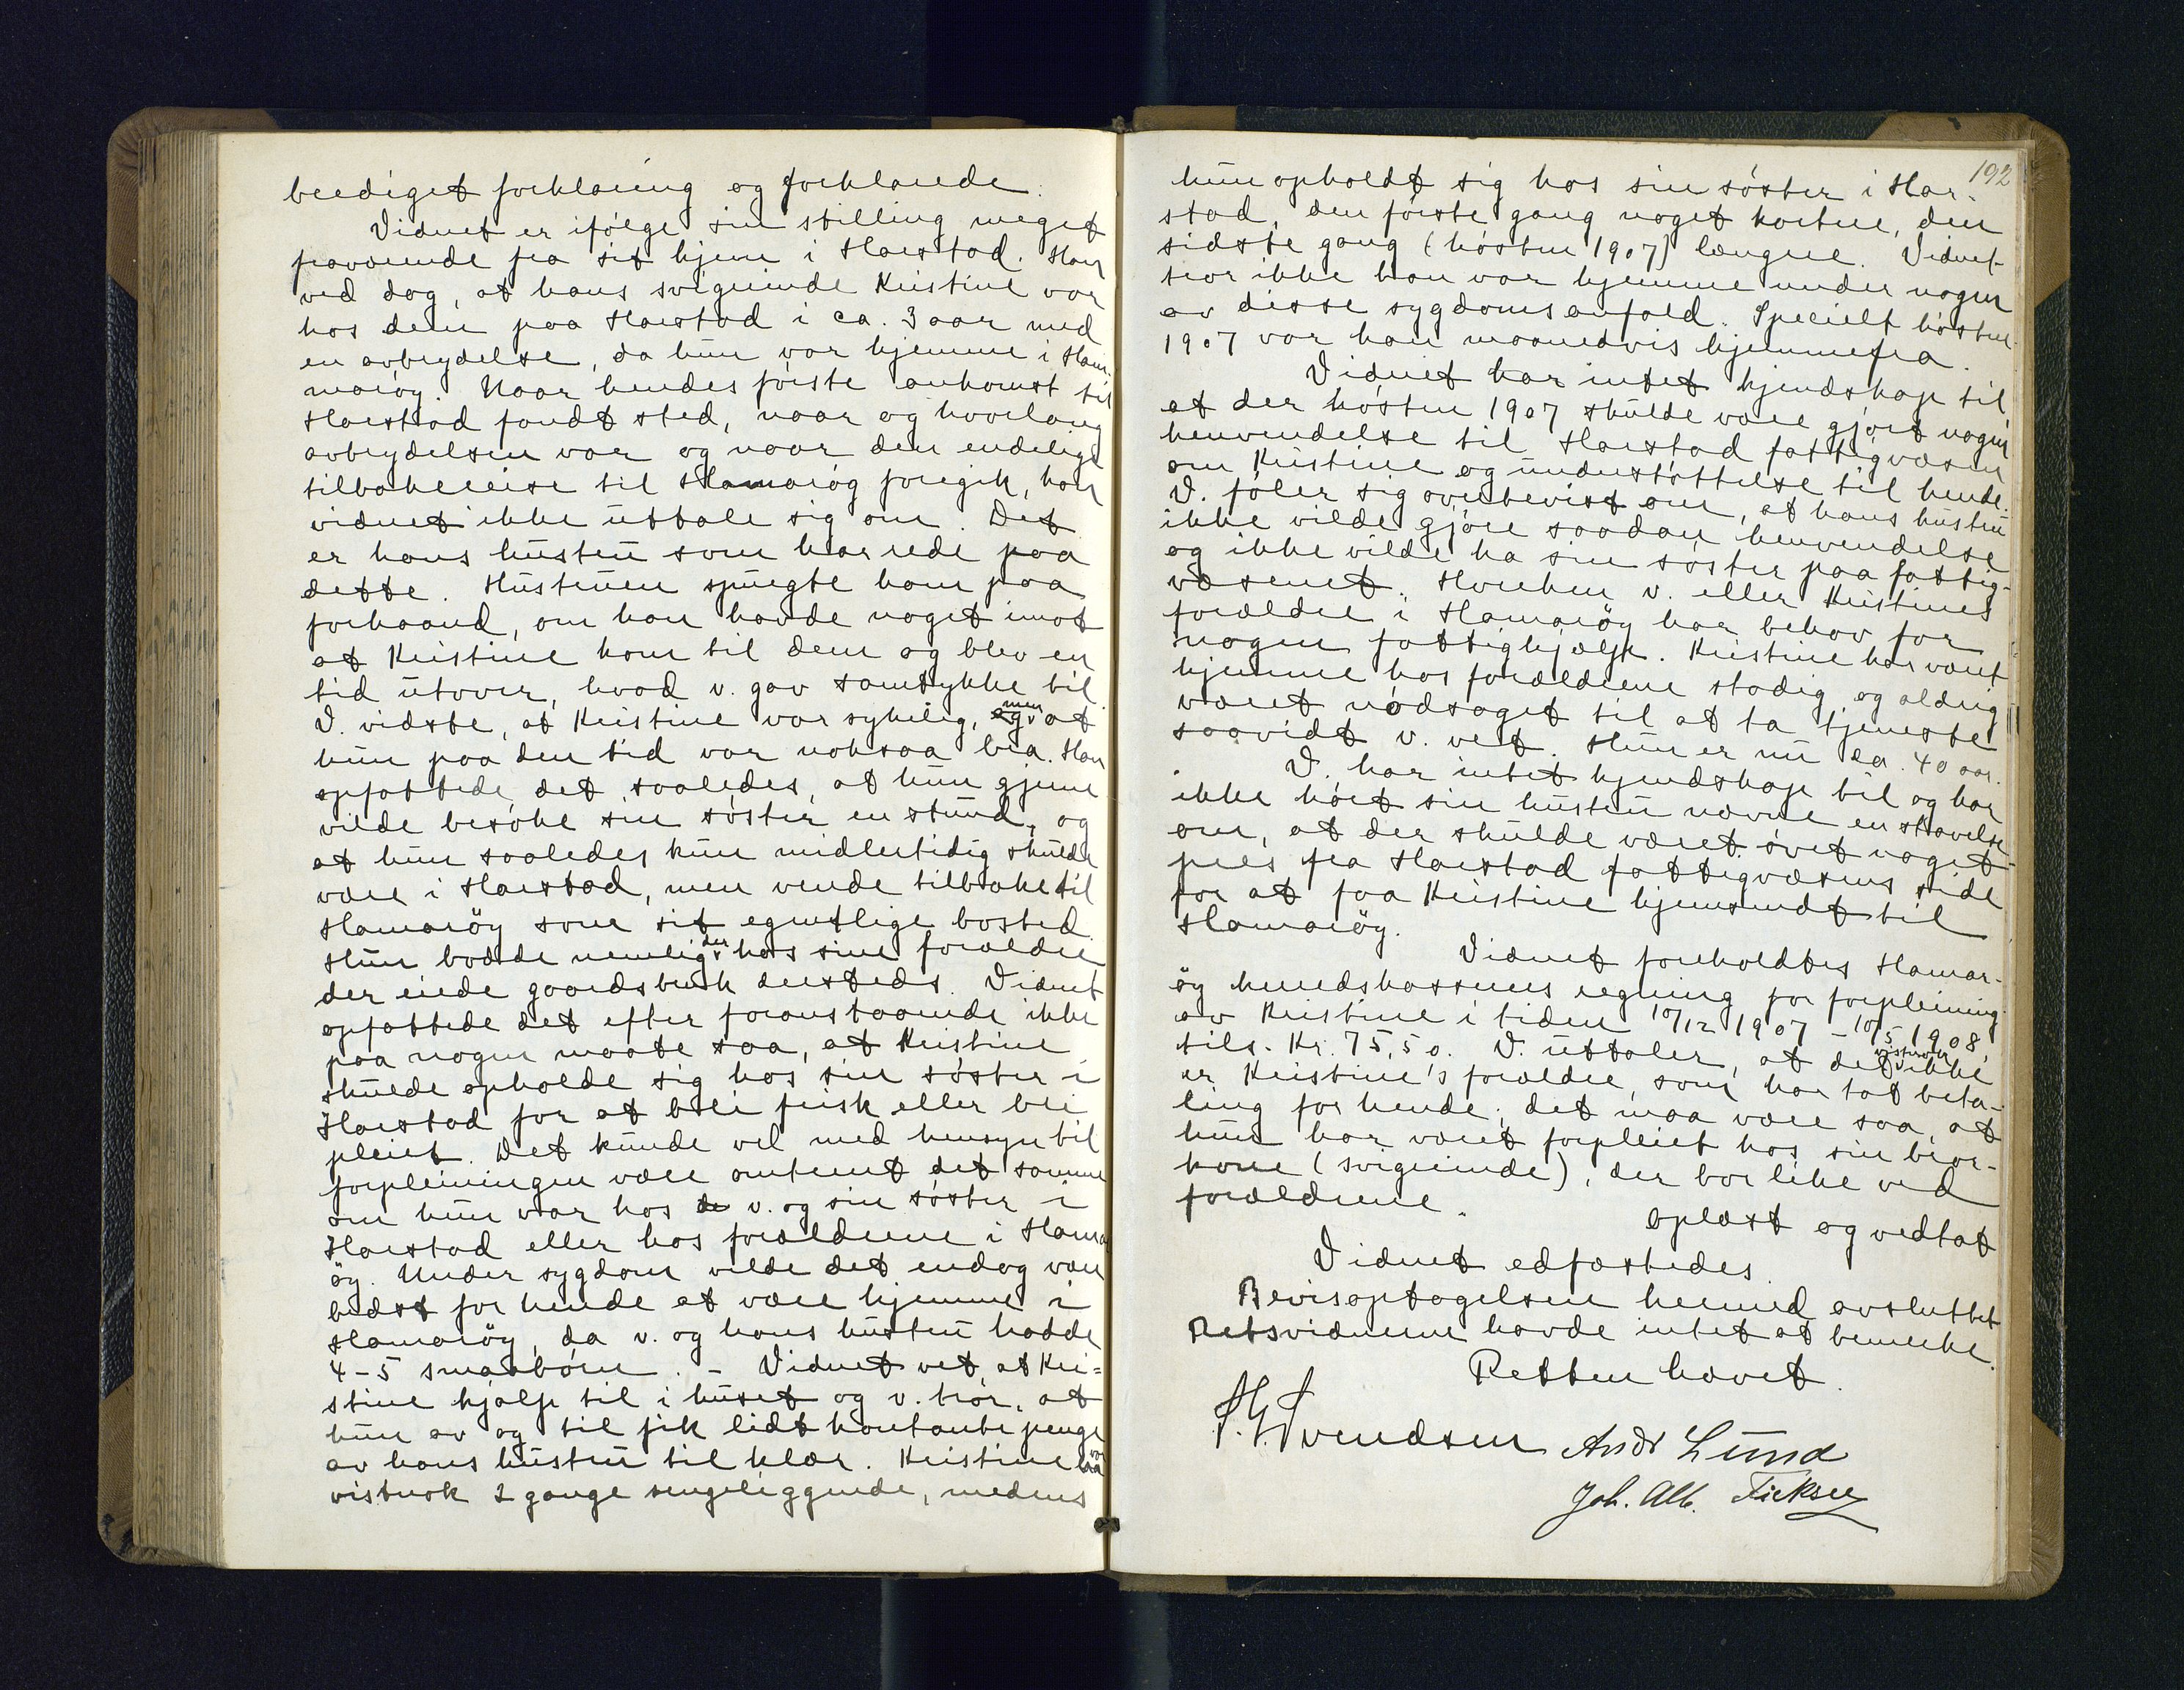 beediget forklaring og forklarede:
Vidnet er ifølge sin stilling meget
fraværende fra sit hjem i Harstad. Han
ved dog, at hans svigerinde Kristine var
hos dem paa Harstad i ca. 3 aar med
en avbrydelse, da hun var hjemme i Ham-
marøy. Naar hendes første ankomst til
Harstad fandt sted, naar og hvorlang
avbrydelsen var og naar den endelige
tilbakereise til Hamarøy foregik, kan
vidnet ikke uttale sig om. Det
er hans hustru som har rede paa
dette. Hustruen spurgte ham paa
forhaand, om han havde noget imot
at Kristine kom til dem og blev en
tid utover, hvad v. gav samtykke til.
V. vidste, at Kristine var sykelig, men at
hun paa den tid var noksaa bra. Han
opfattede det saaledes, at hun gjerne
vilde besøke sin søster en stund, og
at hun saaledes kun midlertidig skulde
være i Harstad, men vende tilbake til
Hamarøy som sit egentlige bosted.
Hun bodde nemlig der hos sine forældre
der eiede gaardsbruk dersteds. Vidnet
opfattede det efter foranstaaende ikke
paa nogen maate saa, at Kristine
skulde opholde sig hos sin søster i
Harstad for at bli frisk eller bli
pleiet. Det kunde vel med hensyn til
forpleiningen være omtrent det samme
om hun var hos de v. og sin søster i
Harstad eller hos forældrene i Hamar
øy. Under sygdom vilde det endog være
bedst for hende at være hjemme i
Hamarøy, da v. og hans hustru hadde
4-5 smaabørn. - Vidnet vet, at Kri=
stine hjalp til i huset og v. tror, at
hun av og til fik lidt kontante penge
av hans hustru til klær. Kristine var
vistnok 2 gange sengeliggende, medens
192
hun opholdt sig hos sin søster i Har-
stad, den første gang noget kortere, den
sidste gang (høsten 1907) længere. Vidnet
tror ikke han var hjemme under nogen
av disse sygdomsanfald. Specielt høsten
1907 var han maanedvis hjemmefra.
Vidnet har intet kjendskap til
at der høsten 1907 skulde være gjort nogen
henvendelse til Harstad fattigvæsen
om Kristine og understøttelse til hende.
V. føler sig overbevist om, at hans hustru
ikke vilde gjøre saadan henvendelse
og ikke vilde ha sin søster paa fattig-
væsenet. Hverken v. eller Kristines
forældre i Hamarøy har behov for
nogen fattighjælp. Kristine har været
hjemme hos forældrene stadig og aldrig
været nødsaget til at ta tjeneste
saavidt v. vet. Hun er nu ca. 40 aar.
V. har intet kjendskap til og har
ikke hørt sin hustru nævne en stavelse
om, at der skulde været øvet noget
pres fra Harstad fattigvæsens side
for at faa Kristine hjemsendt til
Hamarøy.
Vidnet foreholdtes Hamar-
øy heredskassenes regning for forpleining
av Kristine i tiden 10/12 1907 - 10/5 1908,
tils. Kr. 75,50. V. uttaler, at det vistnok ikke
er Kristine's forældre, som har tat beta-
ling for hende; det maa være saa, at
hun har været forpleiet hos sin bror-
kone (svigerinde), der bor like ved
forældrene.
Oplæst og vedtat
Vidnet edfæstedes.
Bevisoptagelsen hermed avsluttet
Retsvidnerne havde intet at bemerke.
Retten hævet.
Svendsen Andr Lund
Joh. Alb.